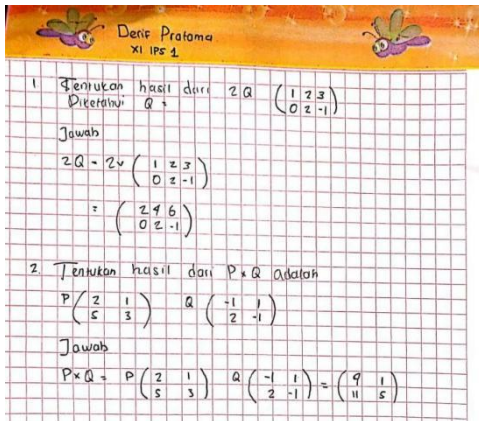 Derif Pratama
XI IPS 1
1 Tentukan hasil dari 2Q ( 1 2 3
Diketahui Q = 0 2 -1 )
Jawab
2Q = 2x ( 1 2 3
0 2 -1 )
= ( 2 4 6
0 2 -1 )
2. Tentukan hasil dari P x Q adalah
P ( 2 1 Q ( -1 1
5 3 ) 2 -1 )
Jawab
P x Q = P ( 2 1 Q ( -1 1 = ( 9 1
5 3 ) 2 -1 ) 11 5 )